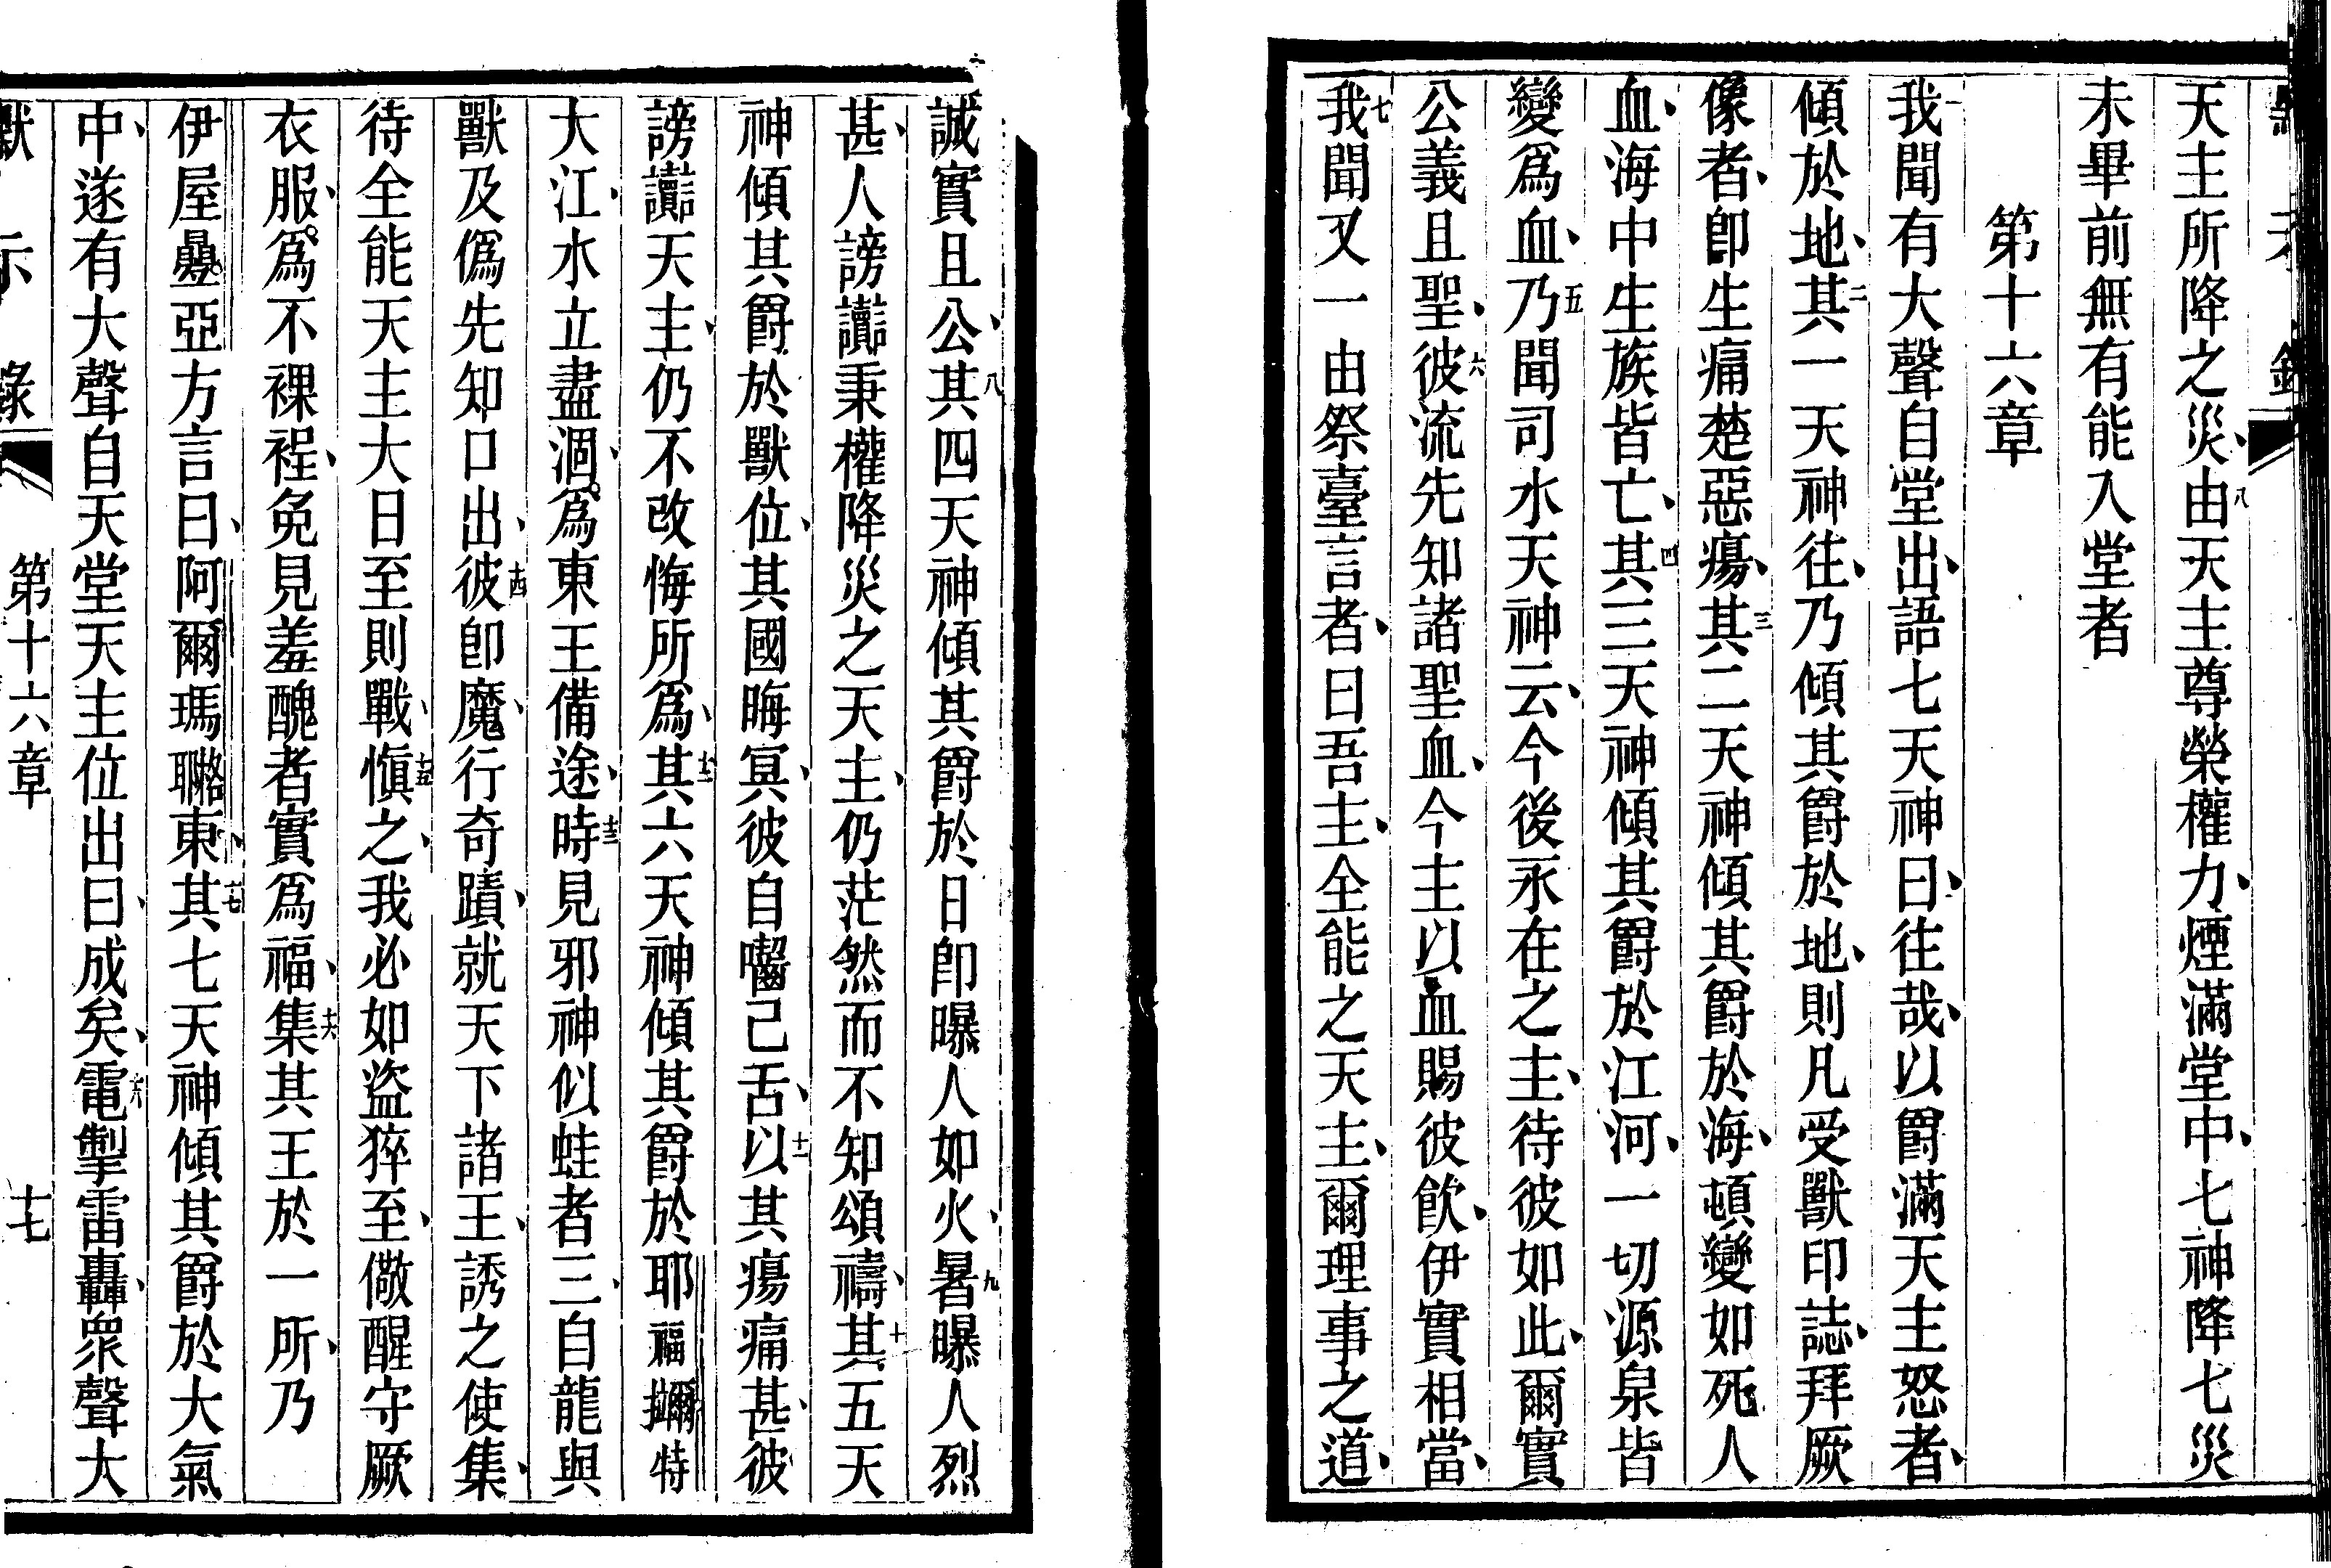 天主所降之災、八由天主尊榮權力、煙滿堂中、七神降七災
未畢前無有能入堂者
第十六章
一我聞有大聲自堂出、語七天神曰、往哉、以爵滿天主怒者、
傾於地、二其一天神往、乃傾其爵於地、則凡受獸印誌、拜厥
像者、卽生痛楚惡瘍、三其二天神傾其爵於海、頓變如死人
血、海中生族皆亡、四其三天神傾其爵於江河、一切源泉皆
變爲血、五乃聞司水天神云、今後永在之主、待彼如此、爾實
公義且聖、六彼流先知諸聖血、今主以血賜彼飮、伊實相當、
七我聞又一由祭臺言者、曰吾主、全能之天主、爾理事之道、
誠實且公、八其四天神傾其爵於日卽曝人如火、九暑曝人烈
甚、人謗讟秉權降災之天主、仍茫然而不知頌禱、十其五天
神傾其爵於獸位、其國晦冥、彼自囓己舌、十一以其瘍痛甚、彼
謗讟天主、仍不改悔所爲、十二其六天神傾其爵於耶福擟特
大江、水立盡涸、爲東王備途、十三時見邪神似蛙者三、自龍與
獸及僞先知口出、十四彼卽魔、行奇蹟、就天下諸王、誘之使集、
待全能天主大日至則戰、十五愼之、我必如盜猝至、儆醒守厥
衣服、爲不裸裎、免見羞醜者實爲福、十六集其王於一所、乃
伊屋曁亞方言曰、阿爾瑪東、十七其七天神傾其爵於大氣
中、遂有大聲自天堂天主位出曰、成矣、十八電掣雷轟、衆聲大
默示錄 第十六章 十七